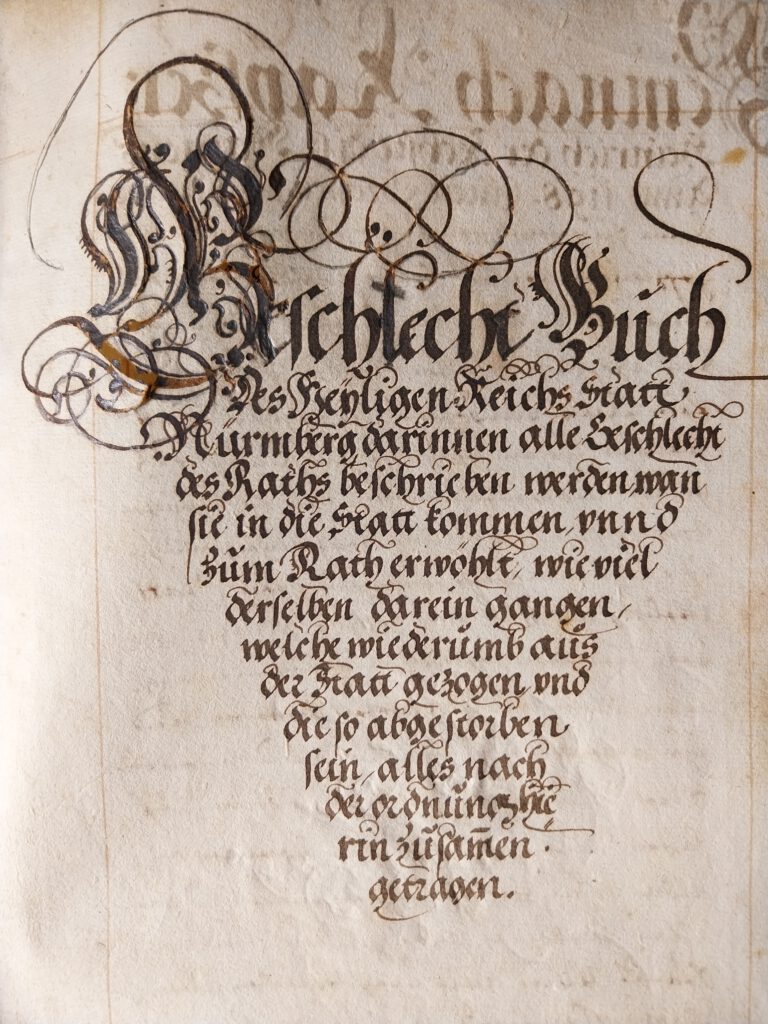 Geschlecht Buch
Des Heyligen Reichs Statt
Nürmberg darinnen alle Geschlecht
des Raths beschrieben werden, wan
sie in die Statt kommen, vnnd
zum Rath erwöhlt, wie viel
derselben darein gangen,
welche wiederumb aus
der Statt gezogen, vnd
die so abgestorben
sein, alles nach
der ordnung hie
rin zusam̄en
getragen.